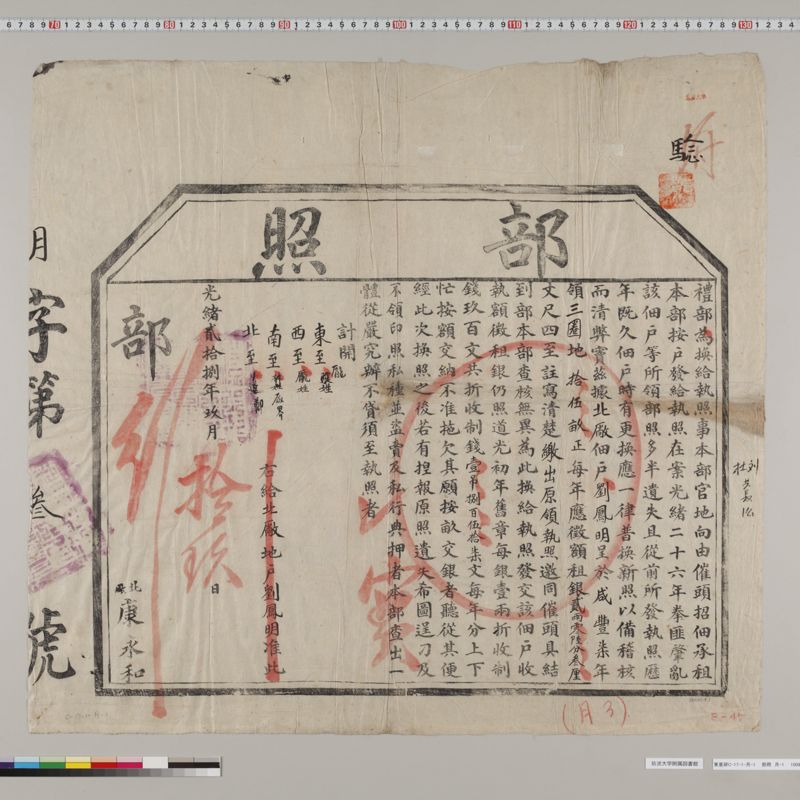 驗
部照
禮部為換給執照事本部官地向由催頭招佃承租
本部按戶發給執照在案光緒二十六年拳匪肇亂
該佃戶等所領部照多半遺失且從前所發執照歷
年既久佃戶時有更換應一律普換新照以備稽核
而清弊竇茲據北廠佃戶劉鳳明呈於咸豐柒年
領三圈地拾伍畝正每年應徵額租銀貳兩零陸分叁厘
丈尺四至註寫清楚繳出原領執照邀同催頭具結
到部本部查核無異為此換給執照發交該佃戶收
執額徵租銀仍照道光初年舊章每銀壹兩折收制
錢玖百文共折收制錢壹吊捌百伍拾柒文每年分上下
忙按額交納不准拖欠其願按畝交銀者聽從其便
經此次換照之後若有捏報原照遺失希圖逞刁及
不領印照私種並盜賣及私行典押者本部查出一
體從嚴究辦不貸須至執照者
計開
東至
西至龐姓
南至
北至
右給北廠地戶劉鳳明准此
光緒貳拾捌年玖月
拾玖
日
部
北廠
康永和
月字第叁號
(月3)
京都大学附属図書館